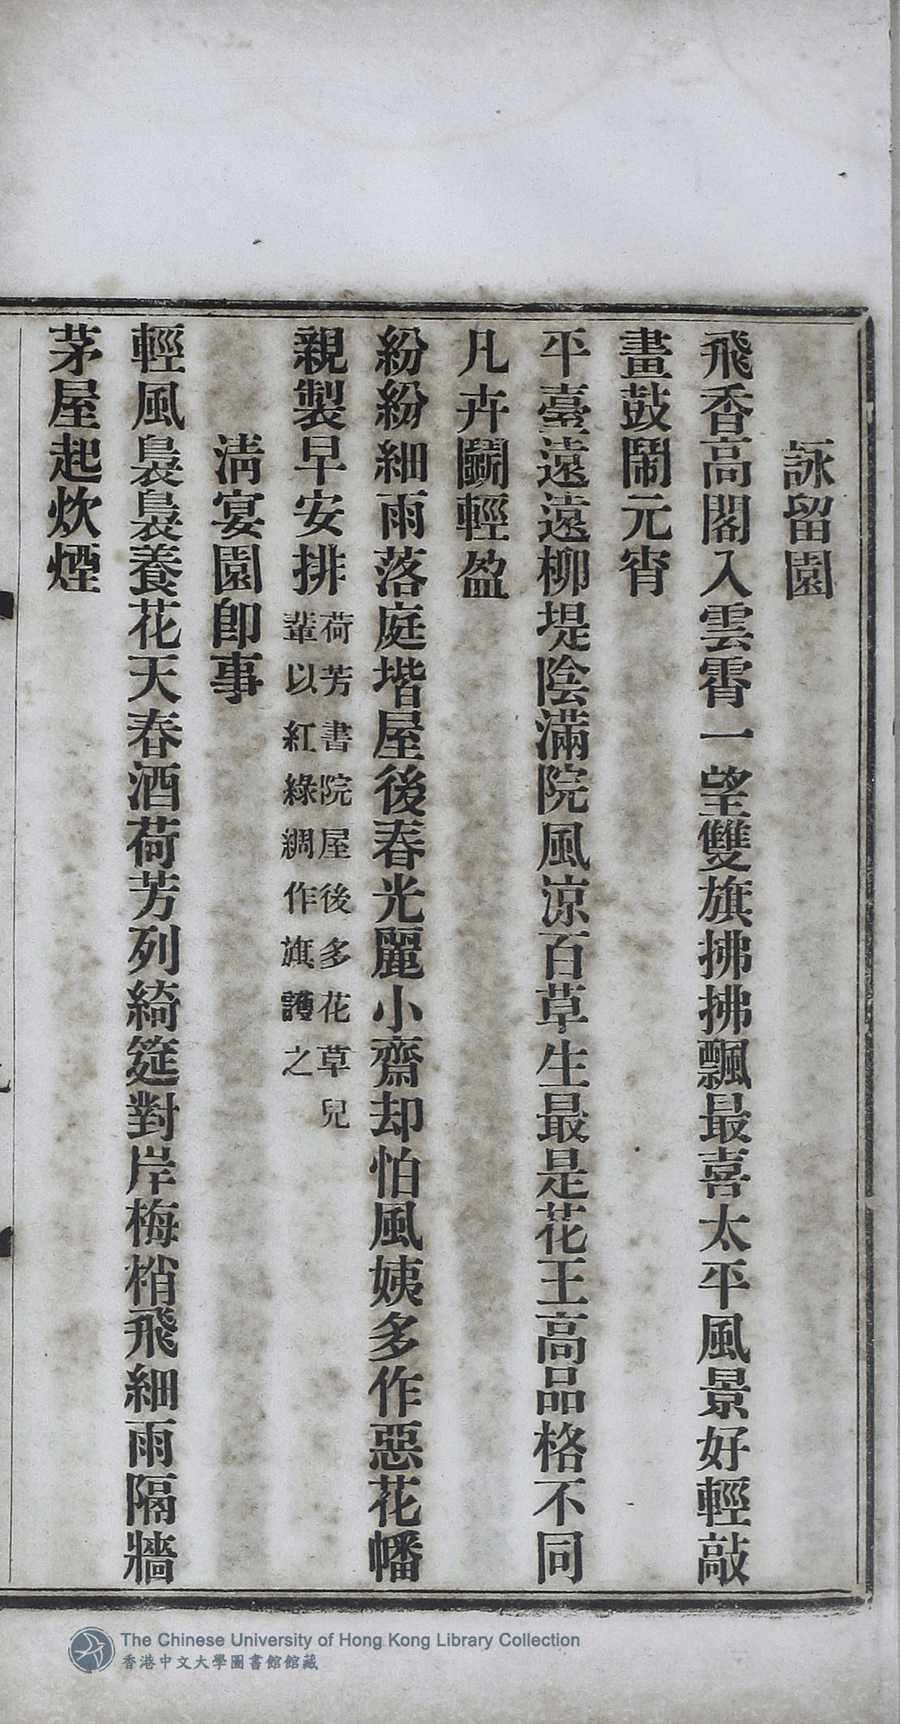 詠留園
飛香高閣入雲霄一望雙旗拂拂飄最喜太平風景好輕敲
畫鼓鬧元宵
平臺遠遠柳堤陰滿院風涼百草生最是花王高品格不同
凡卉鬭輕盈
紛紛細雨落庭堦屋後春光麗小齋却怕風姨多作惡花幡
親製早安排荷芳書院屋後多花草兒
輩以紅綠綢作旗護之
淸宴園卽事
輕風裊裊養花天春酒荷芳列綺筵對岸梅梢飛細雨隔牆
茅屋起炊煙
The Chinese University of Hong Kong Library Collection
香港中文大學圖書館館藏